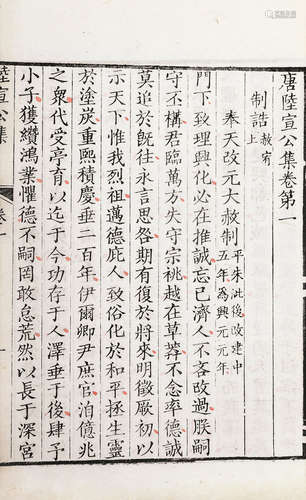 唐陸宣公集卷第一
制誥 赦宥上
奉天改元大赦制 平朱泚後改建中五年為興元元年
門下致理興化必在推誠忘己濟人不吝改過朕嗣
守丕構君臨萬方失守宗祧越在草莽不念率德誠
莫追於既往永言思咎期有復於將來明徵厥初以
示天下惟我烈祖邁德庇人致俗化於和平拯生靈
於塗炭重熙積慶垂二百年伊爾卿尹庶官洎億兆
之衆代受亭育以迄于今功存于人澤垂于後肆予
小子獲纘鴻業懼德不嗣罔敢怠荒然以長于深宮
陸宣公集
卷一
一